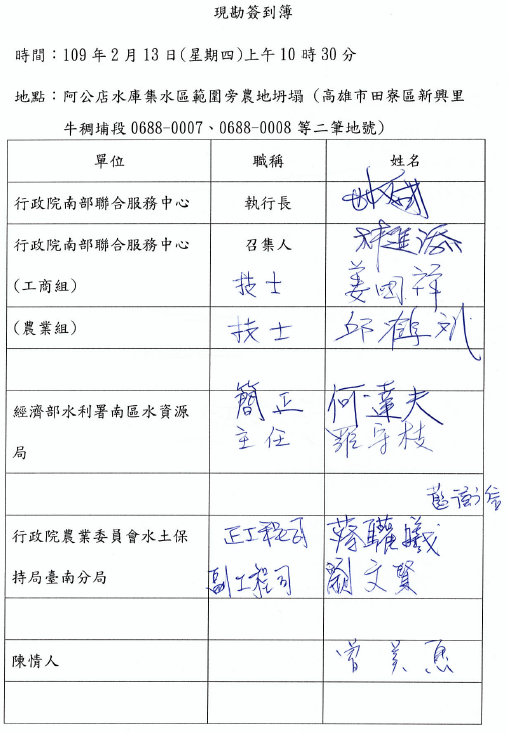 現勘簽到簿
時間：109年2月13日(星期四)上午10時30分
地點：阿公店水庫集水區範圍旁農地坍塌（高雄市田寮區新興里
牛稠埔段0688-0007、0688-0008等二筆地號）
單位 職稱 姓名
行政院南部聯合服務中心 執行長
行政院南部聯合服務中心 召集人
(工商組) 技士 姜國祥
(農業組) 技士 邱
經濟部水利署南區水資源 簡正 何達夫
局 主任 羅守枝
行政院農業委員會水土保 正工程司 蔡曦
持局臺南分局 副工程司 劉文賢
陳情人 曾美惠